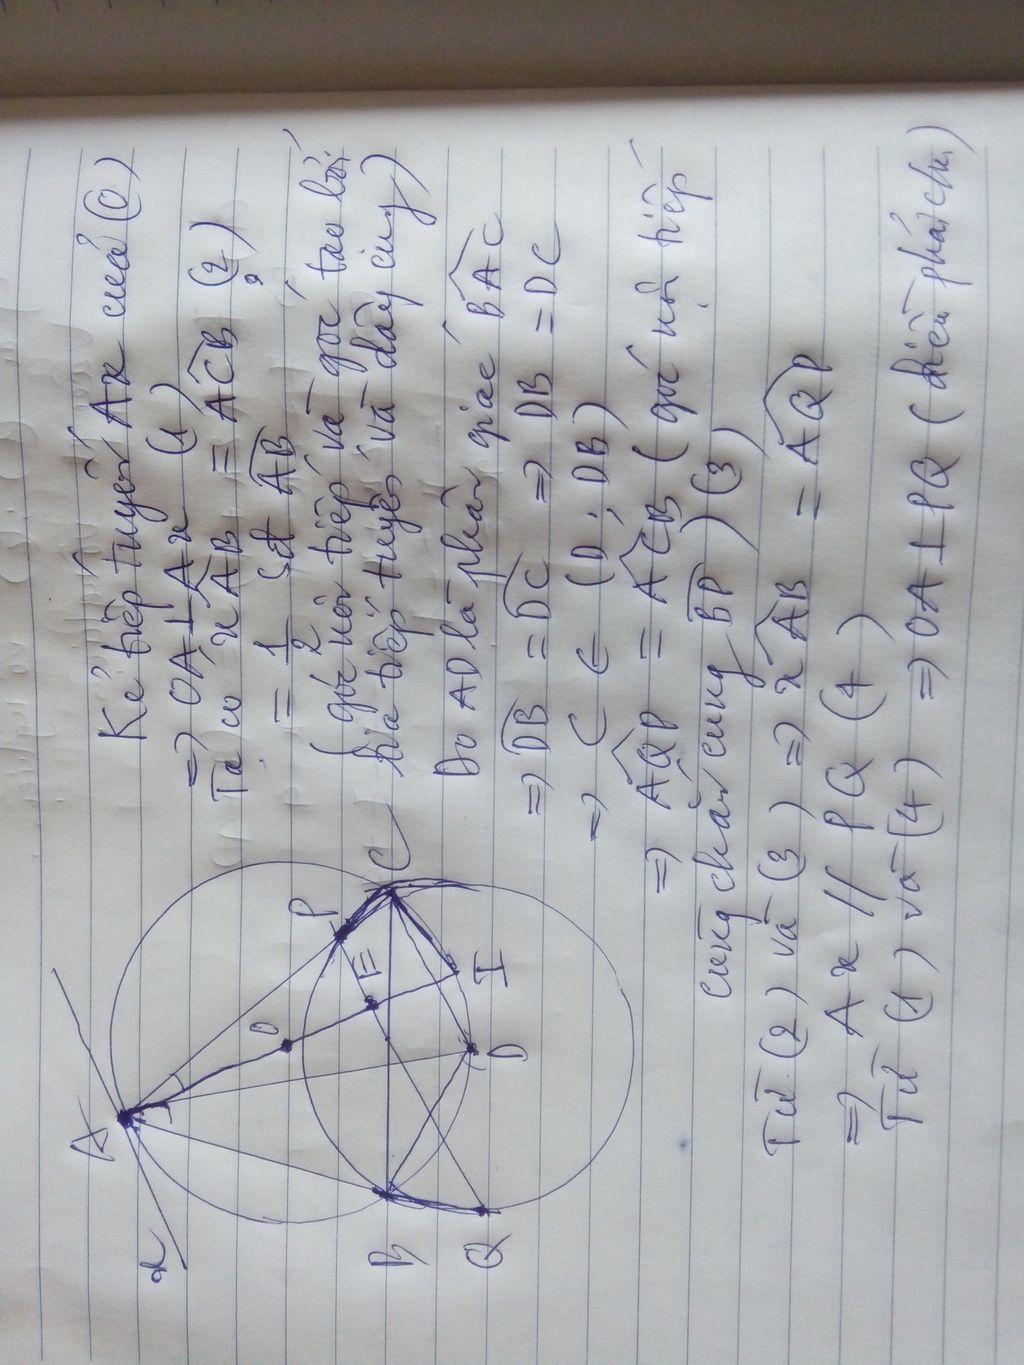 Kẻ tiếp tuyến Ax của (O)
=> OA ⊥ Ax (1)
Ta có xAB = ACB (2)
= 1/2 sđ AB
( góc nội tiếp và góc tạo bởi
tia tiếp tuyến và dây cung)
Do AD là phân giác BAC
=> DB = DC => DB = DC
=> C ∈ (D; DB)
=> AQP = ACB ( góc nội tiếp
cùng chắn cung BP) (3)
Từ (2) và (3) => xAB = AQP
=> Ax // PQ (4)
Từ (1) và (4) => OA ⊥ PQ (
A
x
O
P
E
C
B
I
D
Q